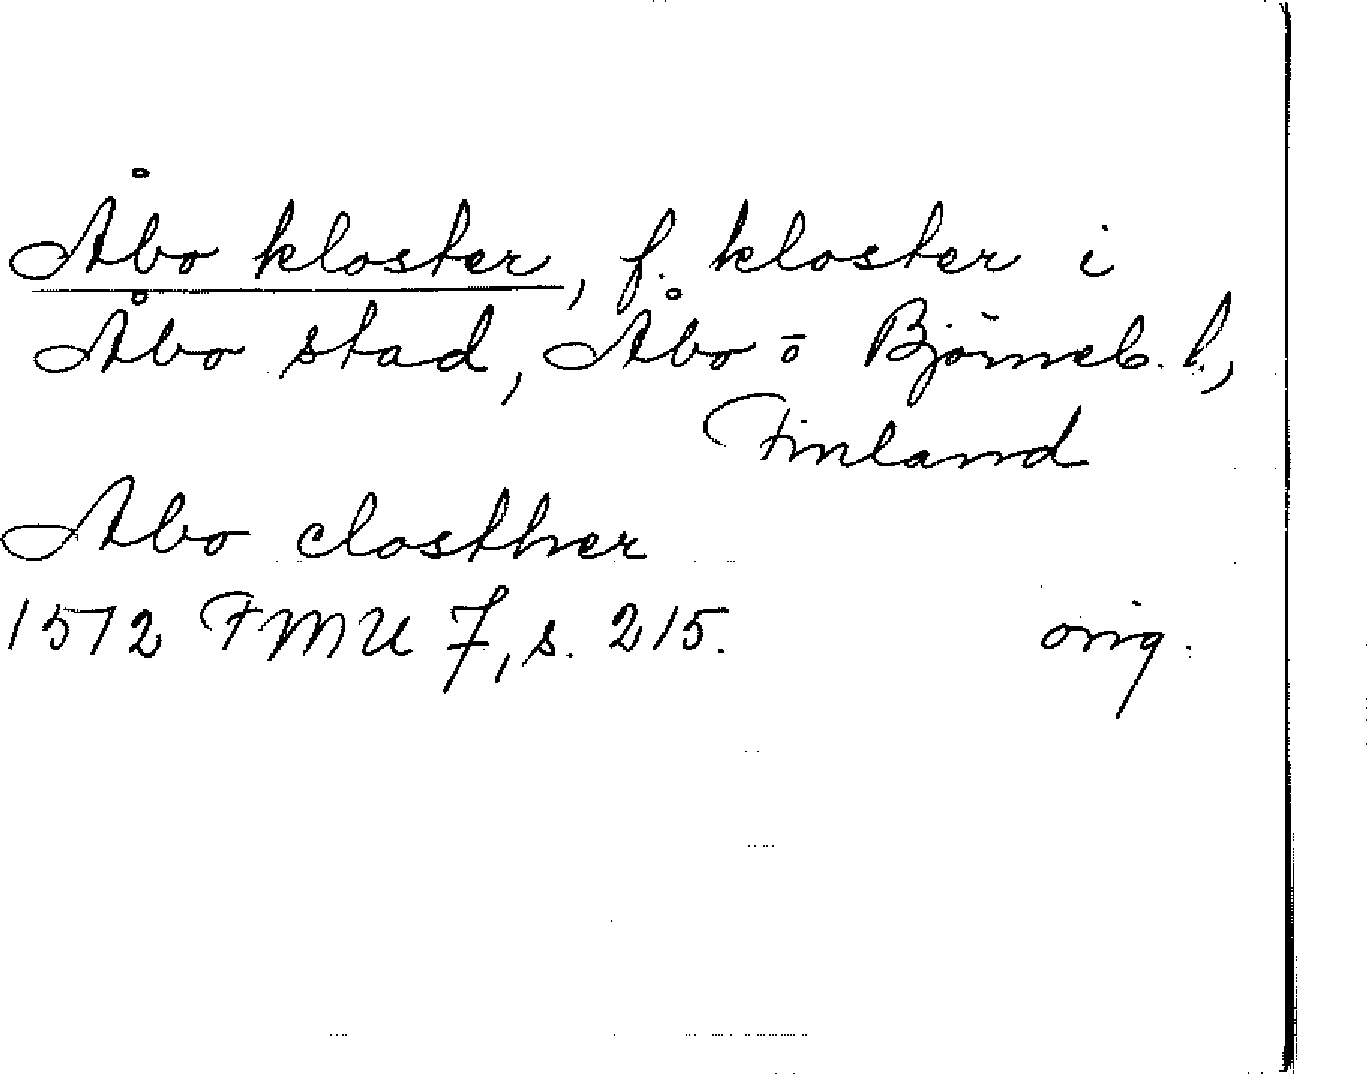 Åbo kloster, f. kloster i
Åbo stad, Åbo o Björneb. l.,
Finland
Abo closther
1572 FMU 7, s. 215. orig.